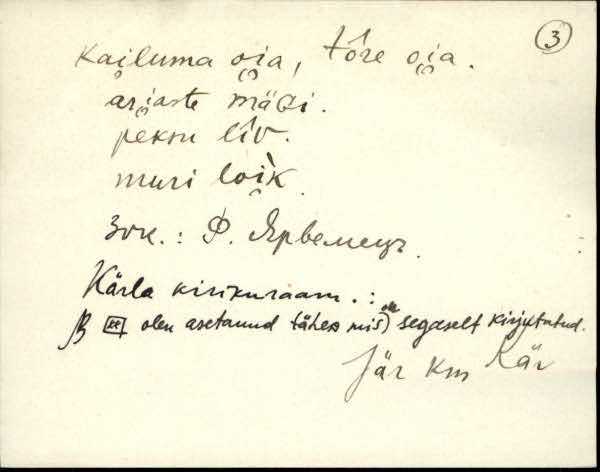 3
kailuma oi̯a, tôre oi̯a.
ari̯aste mäGi.
peksu lîv.
muri loìk.
Зок.: Ф. Ярвемецъ.
Kärla kirikuraam.:
olen asetanud tähes mis on segaselt kirjutatud.
Jär Km Kär